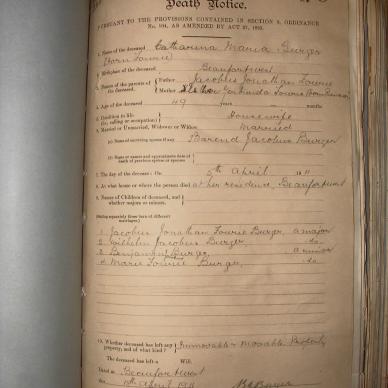 Death Notice.
PURSUANT TO THE PROVISIONS CONTAINED IN SECTION 9, ORDINANCE
No. 104, AS AMENDED BY ACT
1. Name of the deceased Catharina Maria Burger
(Born Fourie)
2. Birthplace of the deceased Beaufort West
3. Names of the parents of the deceased. Father Jacobus Jonathan Fourie
Mother Gertruida Fourie
4. Age of the deceased 49 years months
5. Condition in life (or, calling or occupation) Housewife
6. Married or Unmarried, Widower or Widow Married
(a) Name of surviving spouse if any Barend Jacobus Burger
(b) Name or names and approximate date of death of previous spouse or spouses
7. The day of the decease: On 5th April 1911
8. At what house or where the person died at her residence, Beaufort West
9. Names of Children of deceased, and whether majors or minors.
(Stating separately those born of different marriages)
1. Jacobus Jonathan Fourie Burger, a major
2. Wilhelm Jacobus Burger, do.
3. Benjamin Burger, a minor
4. Marie Fourie Burger, do.
10. Whether deceased has left any property, and of what kind? Immovable & Movable Property
The deceased has left a Will.
Dated at Beaufort West
the 10th April 1911